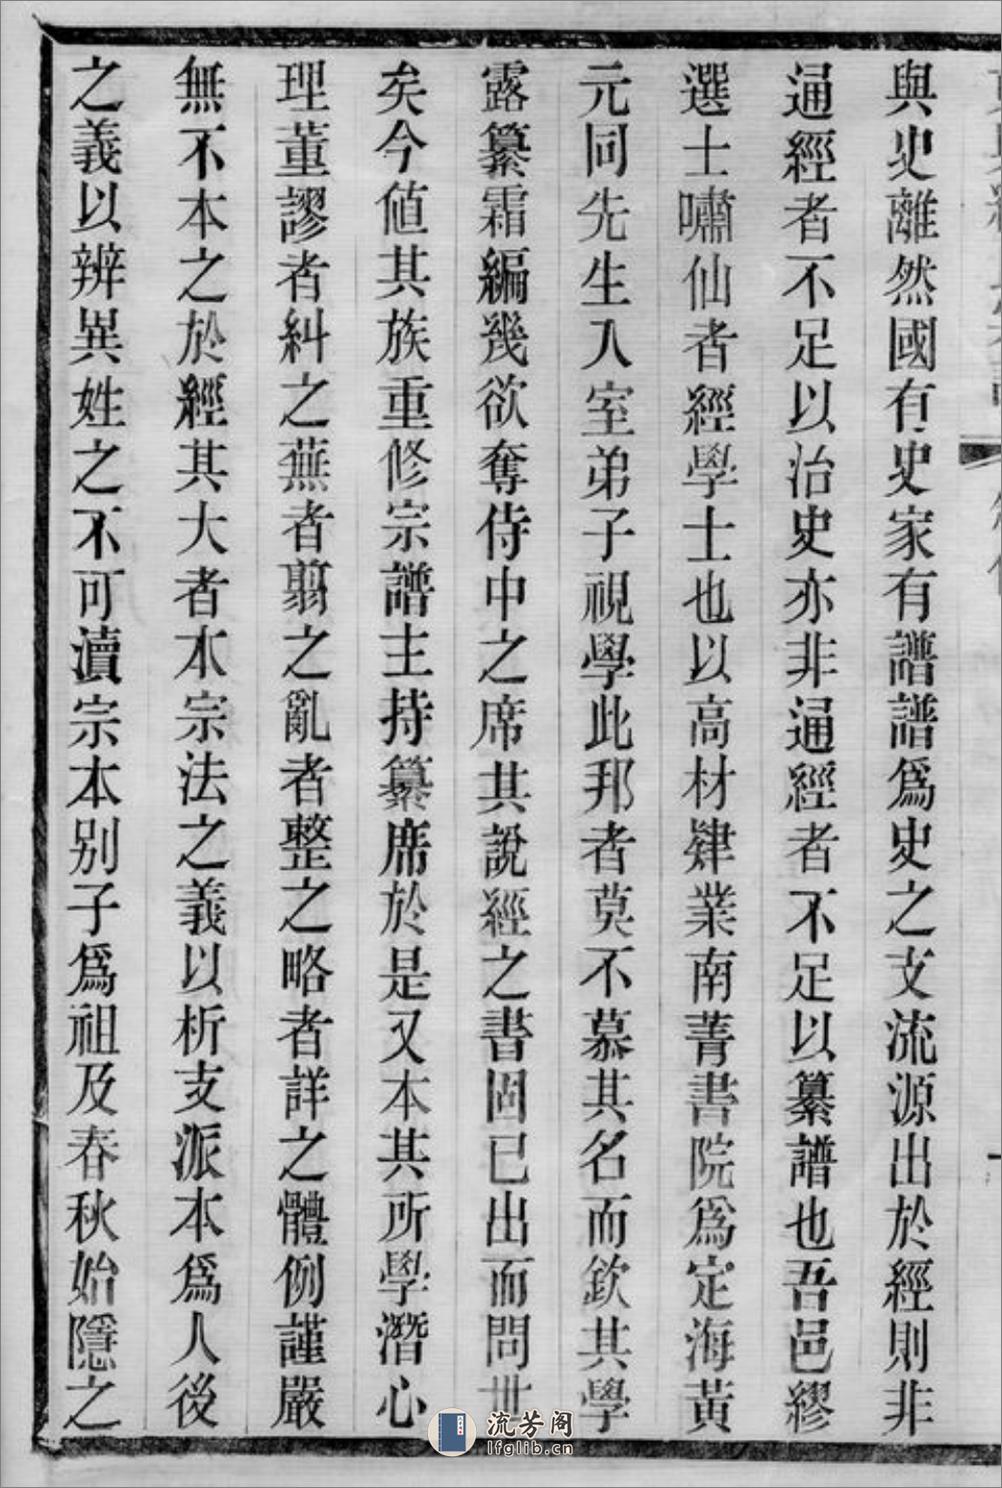 與史離然國有史家有譜譜爲史之支流源出於經則非
通經者不足以治史亦非通經者不足以纂譜也吾邑繆
選士嘯仙者經學士也以高材肄業南菁書院爲定海黃
元同先生入室弟子視學此邦者莫不慕其名而欽其學
露纂霜編幾欲奪侍中之席其說經之書固已出而問世
矣今値其族重修宗譜主持纂席於是又本其所學潛心
理董謬者糾之蕪者翦之亂者整之略者詳之體例謹嚴
無不本之於經其大者本宗法之義以析支派本爲人後
之義以辨異姓之不可瀆宗本别子爲祖及春秋始隱之
流芳阁
lfglib.cn